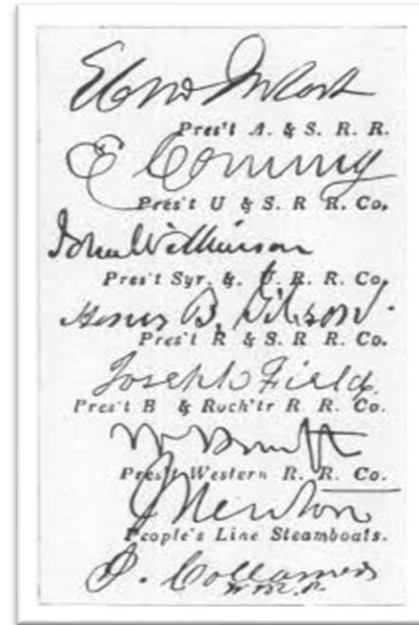 Pres't A. & S. R. R.
E Corning
Pres't U & S. R R. Co.
John Wilkinson
Pres't Syr. &. U. R. R. Co.
Henry B. Gibson
Pres't R & S. R R. Co.
Joseph Field
Pres't B & Roch'tr R R. Co.
Pres't Western R. R. Co.
J Newton
People's Line Steamboats.
J. Collamer